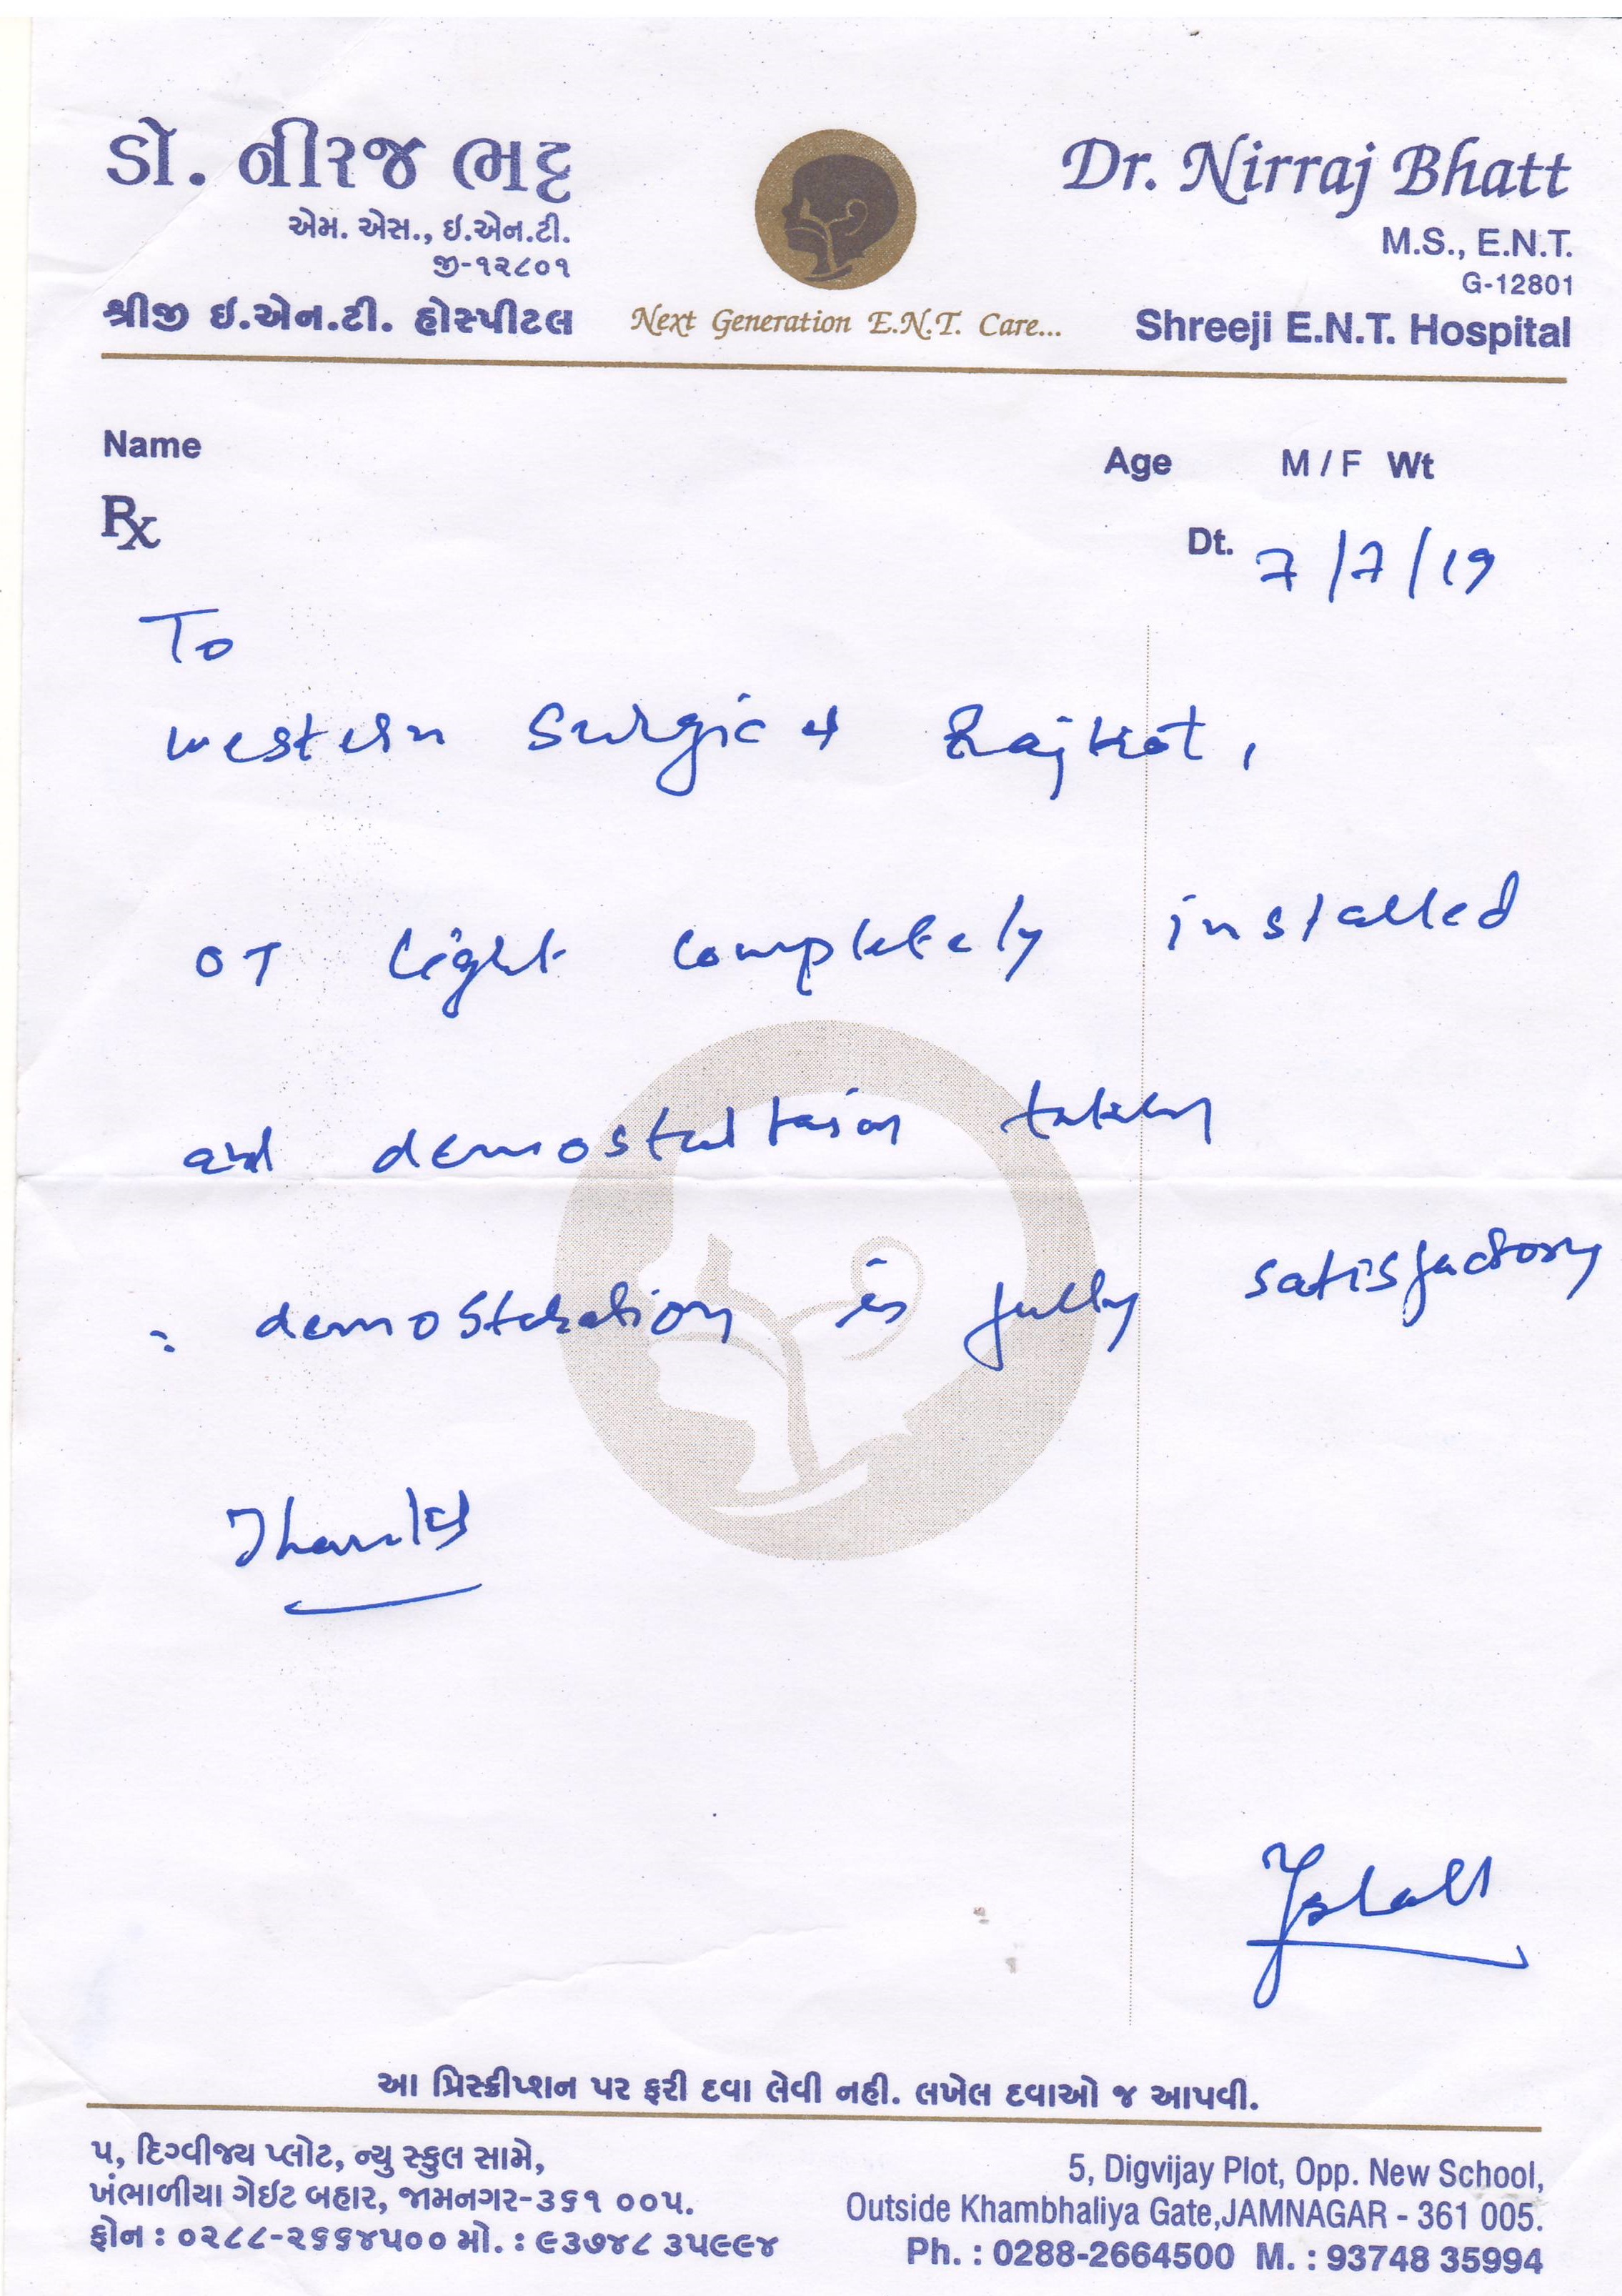 ડો. નીરજ ભટ્ટ
એમ. એસ., ઇ.એન.ટી.
જી-૧૨૮૦૧
શ્રીજી ઇ.એન.ટી. હોસ્પીટલ
Next Generation E.N.T. Care...
Dr. Nirraj Bhatt
M.S., E.N.T.
G-12801
Shreeji E.N.T. Hospital
Name
Age M / F Wt
Rx
Dt. 7/7/19
To
Western Surgical Rajkot,
OT light completely installed
and demostration taken
: demostration is fully satisfactory
Thanks
આ પ્રિસ્ક્રીપ્શન પર ફરી દવા લેવી નહી. લખેલ દવાઓ જ આપવી.
૫, દિગ્વીજય પ્લોટ, ન્યુ સ્કુલ સામે,
ખંભાળીયા ગેઇટ બહાર, જામનગર-૩૬૧ ૦૦૫.
ફોન : ૦૨૮૮-૨૬૬૪૫૦૦ મો. : ૯૩૭૪૮ ૩૫૯૯૪
5, Digvijay Plot, Opp. New School,
Outside Khambhaliya Gate,JAMNAGAR - 361 005.
Ph. : 0288-2664500 M. : 93748 35994